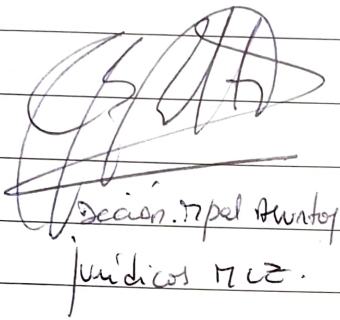 Dección. Mpal Asuntos
jurídicos MCZ.